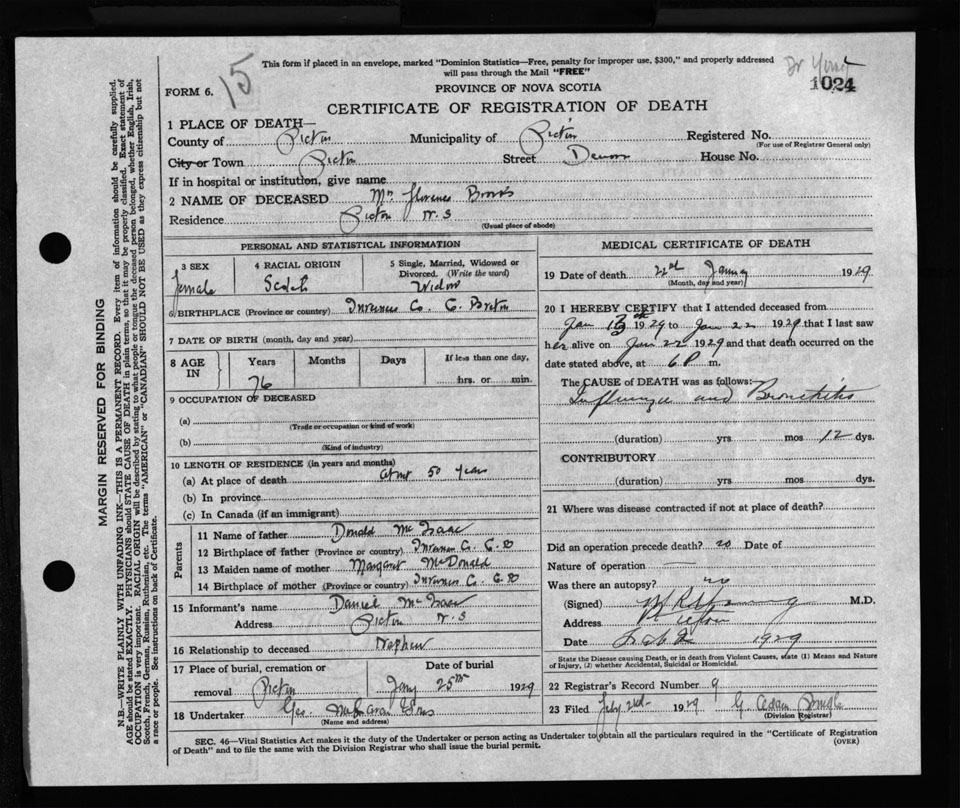 15
This form if placed in an envelope, marked "Dominion Statistics—Free, penalty for improper use, $300," and properly addressed
will pass through the Mail "FREE"
Dr
1024
FORM 6.
PROVINCE OF NOVA SCOTIA
CERTIFICATE OF REGISTRATION OF DEATH
1 PLACE OF DEATH—
County of Pictou Municipality of Pictou Registered No.
(For use of Registrar General only)
City or Town Pictou Street House No.
If in hospital or institution, give name
2 NAME OF DECEASED Mrs Florence
Residence Pictou N.S
(Usual place of abode)
PERSONAL AND STATISTICAL INFORMATION
3 SEX 4 RACIAL ORIGIN 5 Single, Married, Widowed or
Divorced. (Write the word)
female Scotch Widow
6 BIRTHPLACE (Province or country) Inverness Co. C. Breton
7 DATE OF BIRTH (month, day and year)
8 AGE IN Years Months Days If less than one day,
76 hrs. or min.
9 OCCUPATION OF DECEASED
(a)
(Trade or occupation or kind of work)
(b)
(Kind of industry)
10 LENGTH OF RESIDENCE (in years and months)
(a) At place of death about 50 years
(b) In province
(c) In Canada (if an immigrant)
Parents
11 Name of father Donald McIsaac
12 Birthplace of father (Province or country) Inverness Co. C.B
13 Maiden name of mother Margaret McDonald
14 Birthplace of mother (Province or country) Inverness Co. C.B
15 Informant's name Daniel McIsaac
Address Pictou N.S
16 Relationship to deceased Nephew
17 Place of burial, cremation or Date of burial
removal Pictou Jany 25th 1929
18 Undertaker Geo.
(Name and address)
MEDICAL CERTIFICATE OF DEATH
19 Date of death 22nd January 1929
(Month, day and year)
20 I HEREBY CERTIFY that I attended deceased from
Jan 1929 to Jan 22 1929 that I last saw
her alive on Jan 22 1929 and that death occurred on the
date stated above, at 6 P m.
The CAUSE OF DEATH was as follows:
Influenza and Bronchitis
(duration) yrs mos 12 dys.
CONTRIBUTORY
(duration) yrs mos dys.
21 Where was disease contracted if not at place of death?
Did an operation precede death? no Date of
Nature of operation —
Was there an autopsy? no
(Signed) M.D.
Address Pictou
Date 1929
State the Disease causing Death, or in death from Violent Causes, state (1) Means and Nature
of Injury, (2) whether Accidental, Suicidal or Homicidal.
22 Registrar's Record Number 9
23 Filed Feby 2nd 1929 G. Adam
(Division Registrar)
SEC. 46—Vital Statistics Act makes it the duty of the Undertaker or person acting as Undertaker to obtain all the particulars required in the "Certificate of Registration
of Death" and to file the same with the Division Registrar who shall issue the burial permit.
(OVER)
MARGIN RESERVED FOR BINDING
N.B.—WRITE PLAINLY WITH UNFADING INK—THIS IS A PERMANENT RECORD. Every item of information should be carefully supplied.
AGE should be stated EXACTLY. PHYSICIANS should STATE CAUSE OF DEATH in plain terms, so that it may be properly classified. Exact statement of
OCCUPATION is very important. RACIAL ORIGIN will be described by stating to what people or tongue the deceased person belonged, whether English, Irish,
Scotch, French, German, Russian, Ruthenian, etc. The terms "AMERICAN" or "CANADIAN" SHOULD NOT BE USED as they express citizenship but not
a race or people. See instructions on back of Certificate.